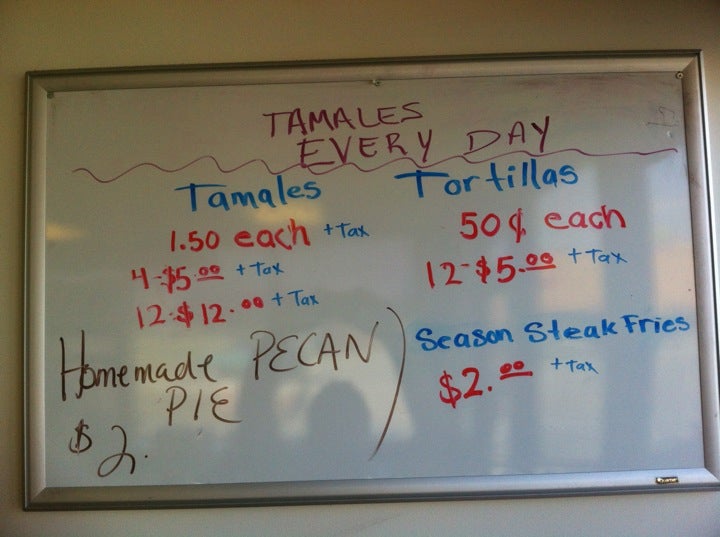 TAMALES
EVERY DAY
Tamales
1.50 each + Tax
4-$5.00 + Tax
12-$12.00 + Tax
Homemade PECAN
PIE
$2.
Tortillas
50¢ each
12-$5.00 + Tax
Season Steak Fries
$2.00 + tax